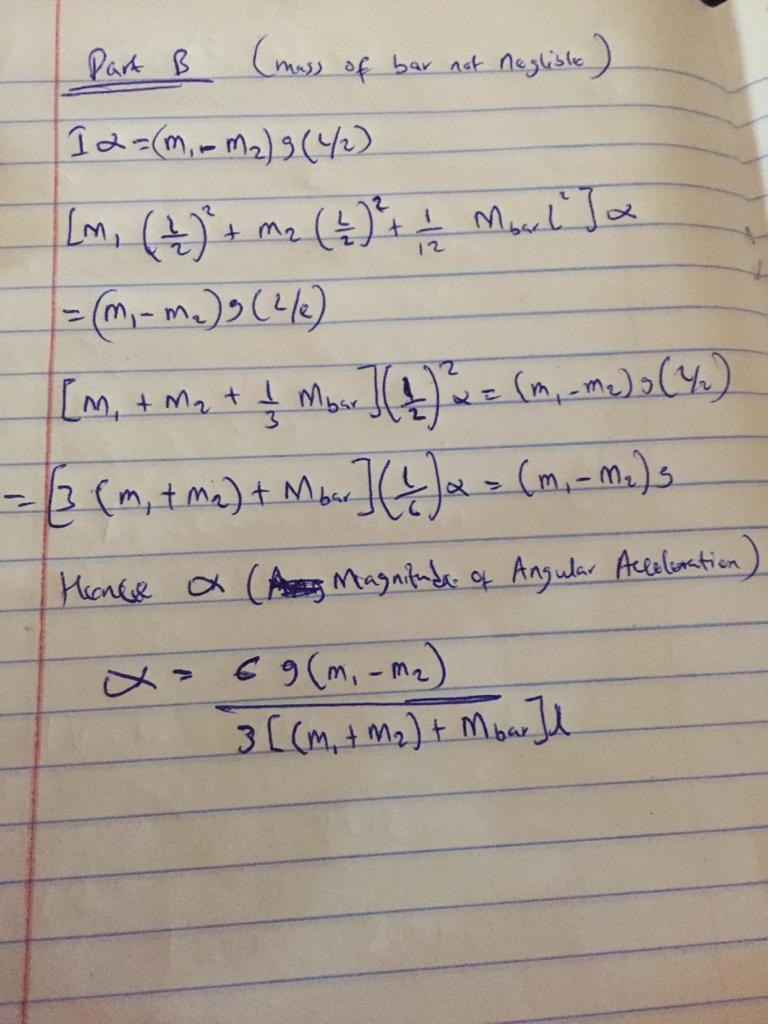 Part B (mass of bar not neglisble)
Iα=(m₁-m₂)g(L/2)
[m₁(L/2)²+m₂(L/2)²+1/12 Mbar l²]α
=(m₁-m₂)g(L/2)
[m₁+m₂+1/3 Mbar](L/2)²α=(m₁-m₂)g(L/2)
=[3(m₁+m₂)+Mbar](L/6)α=(m₁-m₂)g
Hence α (Magnitude of Angular Acceleration)
α = 6g(m₁-m₂)
3[(m₁+m₂)+Mbar]l